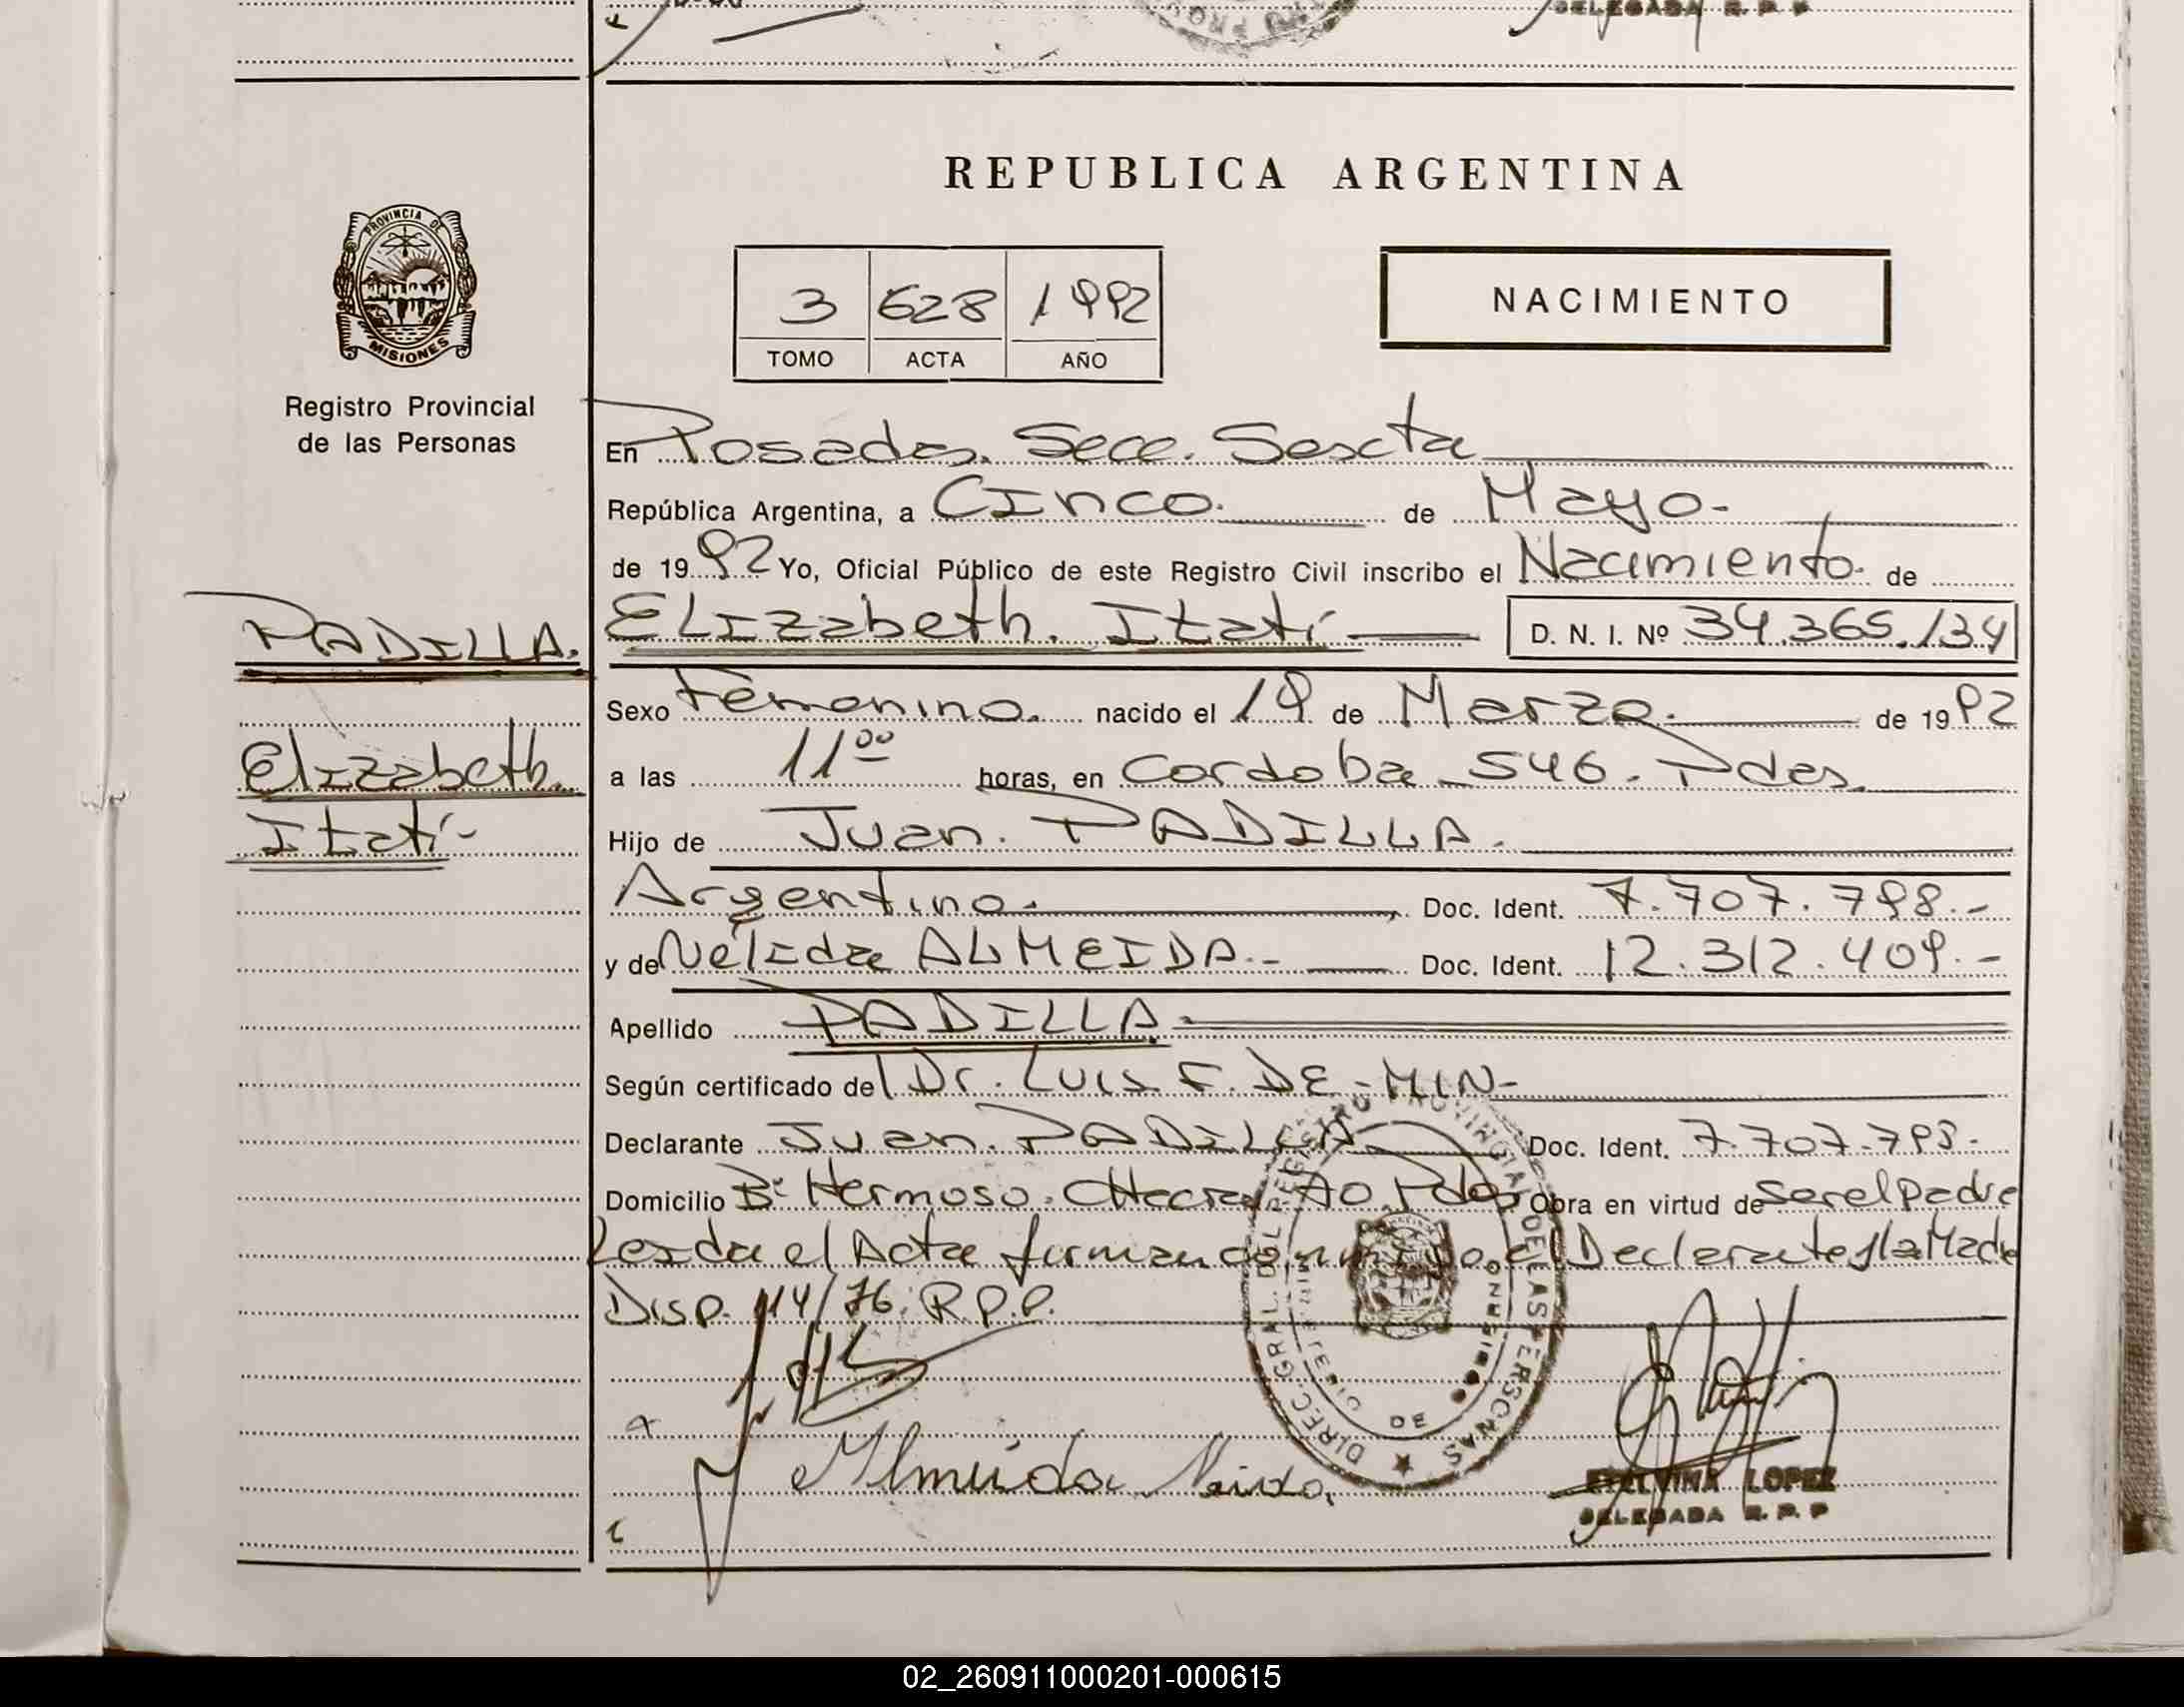 DELEGADA R. P. P
REPUBLICA ARGENTINA
PROVINCIA DE
MISIONES
Registro Provincial
de las Personas
3 628 1992
TOMO ACTA AÑO
NACIMIENTO
En Posadas. Secc. Sexcta
República Argentina, a Cinco. de Mayo.
de 1992 Yo, Oficial Público de este Registro Civil inscribo el Nacimiento de
PADILLA.
Elizabeth. Itatí
D. N. I. Nº 34.365.134
Sexo Femenino. nacido el 19 de Marzo. de 1992
Elizabeth.
Itatí-
a las 11⁰⁰ horas, en Cordoba 546. Pdas.
Hijo de Juan. PADILLA.
Argentino. Doc. Ident. 7.707.798.-
y de Nélida ALMEIDA.- Doc. Ident. 12.312.409.-
Apellido PADILLA.
Según certificado del Dr. LUIS F. DE-MIN-
Declarante Juan. PADILLA Doc. Ident. 7.707.798.-
Domicilio Bº Hermoso. Chacra 40. Pdas Obra en virtud de ser el padre
Leida el Acta firman conmigo el Declarante y la Madre
Disp. 114/76. R.P.P.
DIREC. GRAL. DEL REGISTRO PROVINCIAL DE LAS PERSONAS
Almeida
LOPEZ
DELEGADA R. P. P
02_260911000201-000615